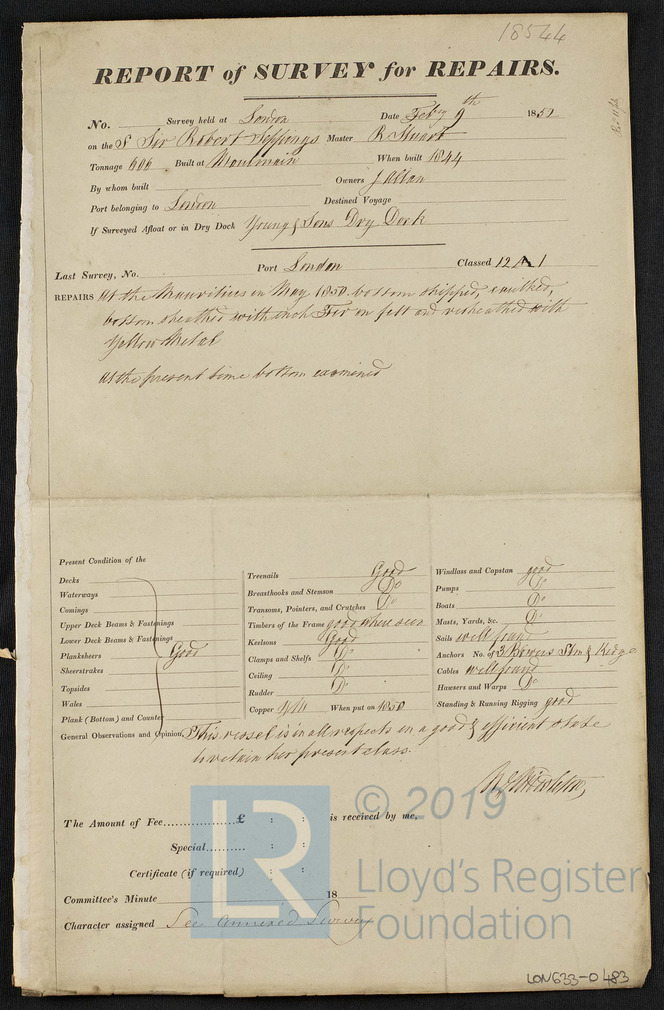 18544
REPORT of SURVEY for REPAIRS.
No. Survey held at London Date Feby 9th 1851
on the S Sir Robert Seppings Master R Stuart
Tonnage 606 Built at Moulmain When built 1844
By whom built Owners J Allan
Port belonging to London Destined Voyage
If Surveyed Afloat or in Dry Dock Young & Sons Dry Dock
Last Survey, No. Port London Classed 12 A 1
REPAIRS At the Mauritius in May 1850 bottom stripped, caulked,
bottom sheathed with inch Fir on felt and resheathed with
Yellow Metal
At the present time bottom examined
Present Condition of the
Decks
Waterways
Comings
Upper Deck Beams & Fastenings
Lower Deck Beams & Fastenings
Planksheers Good
Sheerstrakes
Topsides
Wales
Plank (Bottom) and Counter
Treenails Good
Breasthooks and Stemson Do
Transoms, Pointers, and Crutches Do
Timbers of the Frame good where seen
Keelsons Good
Clamps and Shelfs Do
Ceiling Do
Rudder Do
Copper When put on 1850
Windlass and Capstan good
Pumps Do
Boats Do
Masts, Yards, &c. Do
Sails well found
Anchors No. of 3 Bowers Strm & Kedge
Cables well found
Hawsers and Warps Do
Standing & Running Rigging good
General Observations and Opinion, This vessel is in all respects in a good & efficient state
to retain her present class.
The Amount of Fee....................£ : : is received by me,
Special.......... : :
Certificate (if required) : :
Committee's Minute 18
Character assigned See annexed Survey
LR
© 2019
Lloyd's Register
Foundation
LON633-0483